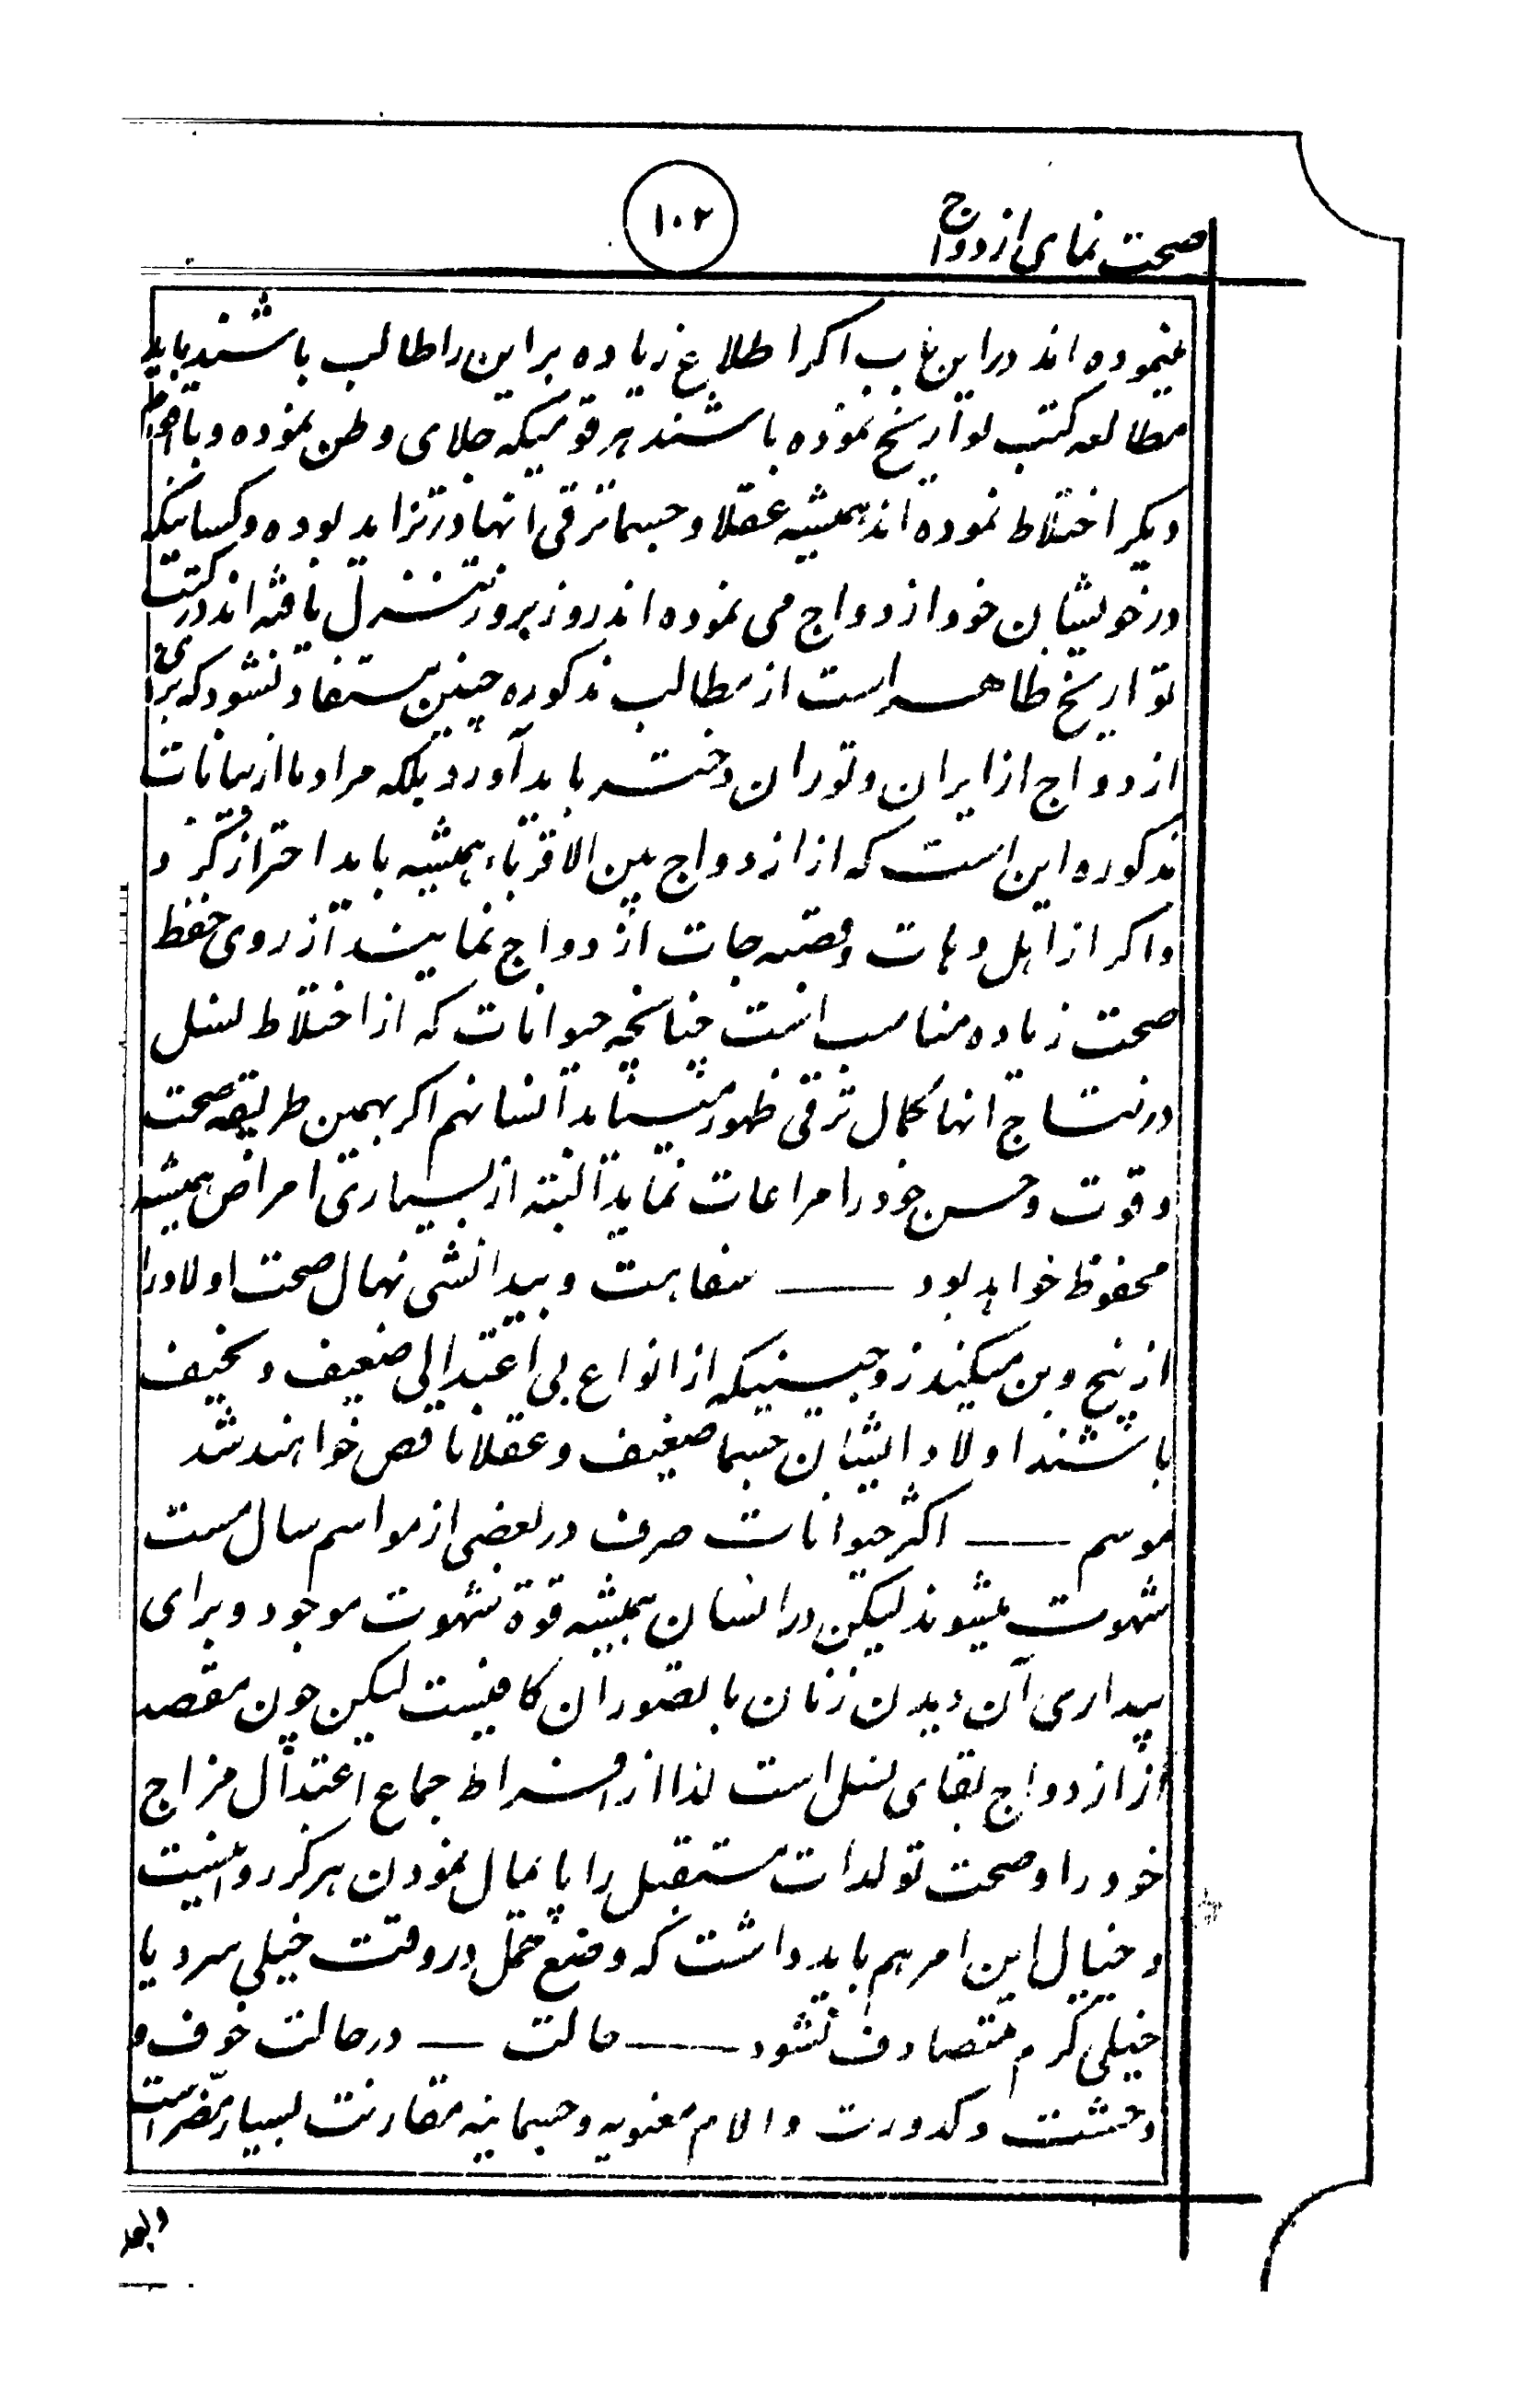 صحت نمای ازدواج
۱۰۲
نموده اند دراین باب اکر اطلاع زیاده براین را طالب باشند باید
مطالعه کتب تواریخ نموده باشند هر قومیکه جلای وطن نموده و با اقوام
دیکر اختلاط نموده اند همیشه عقلا و جسما ترقی انها در تزاید بوده و کسانیکه
در خویشان خود ازدواج می نموده اند روز بروز تنزل یافته اند در کتب
تواریخ ظاهر است از مطالب مذکوره چنین مستفاد نشود که برای
ازدواج از ایران و توران دختر باید آورد بلکه مراد ما از بیانات
مذکوره این است که از ازدواج بین الاقرباء همیشه باید احتراز کرد
و اکر از اهل دهات و قصبه جات ازدواج نمایند از روی حفظ
صحت زیاده مناسب است چنانچه حیوانات که از اختلاط نسل
در نتاج انها کمال ترقی ظهور مینماید انسانهم اکر بهمین طریقه صحت
و قوت و حسن خود را مراعات نماید البته از بسیاری امراض همیشه
محفوظ خواهد بود — سفاهت و بیدانشی نهال صحت اولاد را
از بیخ و بن میکند زوجینیکه از انواع بی اعتدالی ضعیف و نحیف
باشند اولاد ایشان جسما ضعیف و عقلا ناقص خواهند شد
موسم — اکثر حیوانات صرف در بعضی از مواسم سال مست
شهوت میشوند لیکن در انسان همیشه قوة شهوت موجود و برای
بیداری آن دیدن زنان یا تصور ان کافیست لیکن چون مقصد
از ازدواج بقای نسل است لذا از افراط جماع اعتدال مزاج
خود را و صحت تولدات مستقبل را پایمال نمودن هرکز روا نیست
و خیال این امر هم باید داشت که وضع حمل در وقت خیلی سرد یا
خیلی کرم متصادف نشود — حالت — در حالت خوف و
وحشت و کدورت و الام معنویه و جسمانیه مقارنت بسیار مضر است